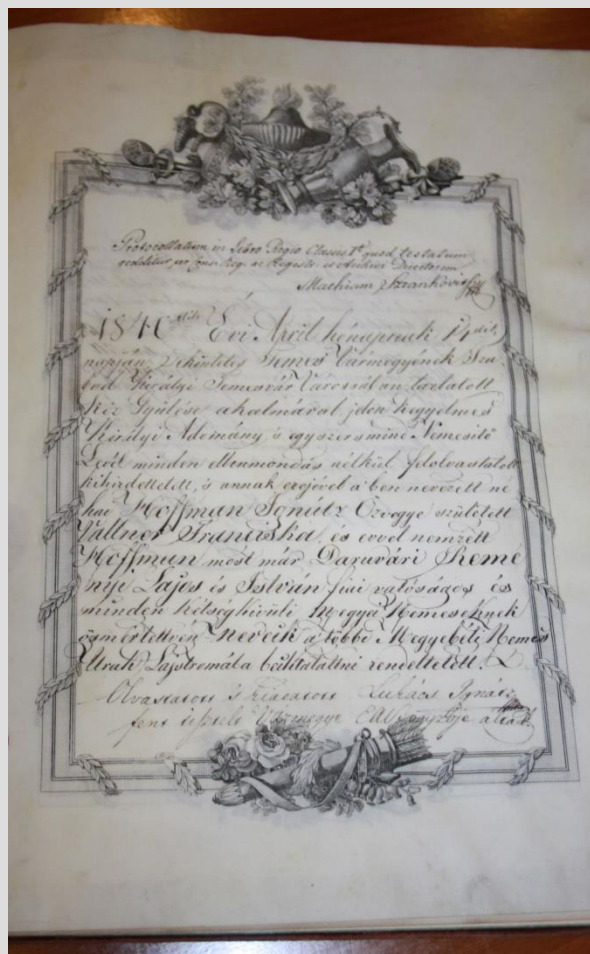 Protocollatum in Libro Regio Classis 1æ quod testatum
redditur per Cons. Reg. ac Regestr. et Archivi Directorem
Mathiam Szankovics
1840dik Évi April hónapnak 14dik
napján Tekintetes Temes Vármegyének Sza
bad Királyi Temesvár Városában tartatott
Köz Gyűlése alkalmával jelen kegyelmes
Királyi Adomány s egyszersmind Nemesítő
Levél minden ellenmondás nélkül felolvastatott
kihirdettetett, s annak erejével a ben nevezett né
hai Hoffman Ignátz Özvegye született
Vallner Franciska, és evvel nemzett
Hoffman most már Daruvári Remé
nyi Lajos és István fiai valóságos és
minden kétségkivüli Megyei Nemeseknek
ösmértetvén neveik a többi Megyebéli Nemes
Urak Lajstromába beiktatáltni rendeltetett.
Olvastatott s kiadatott Lukács Ignátz
fent tisztelt Vármegye Aljegyzője által